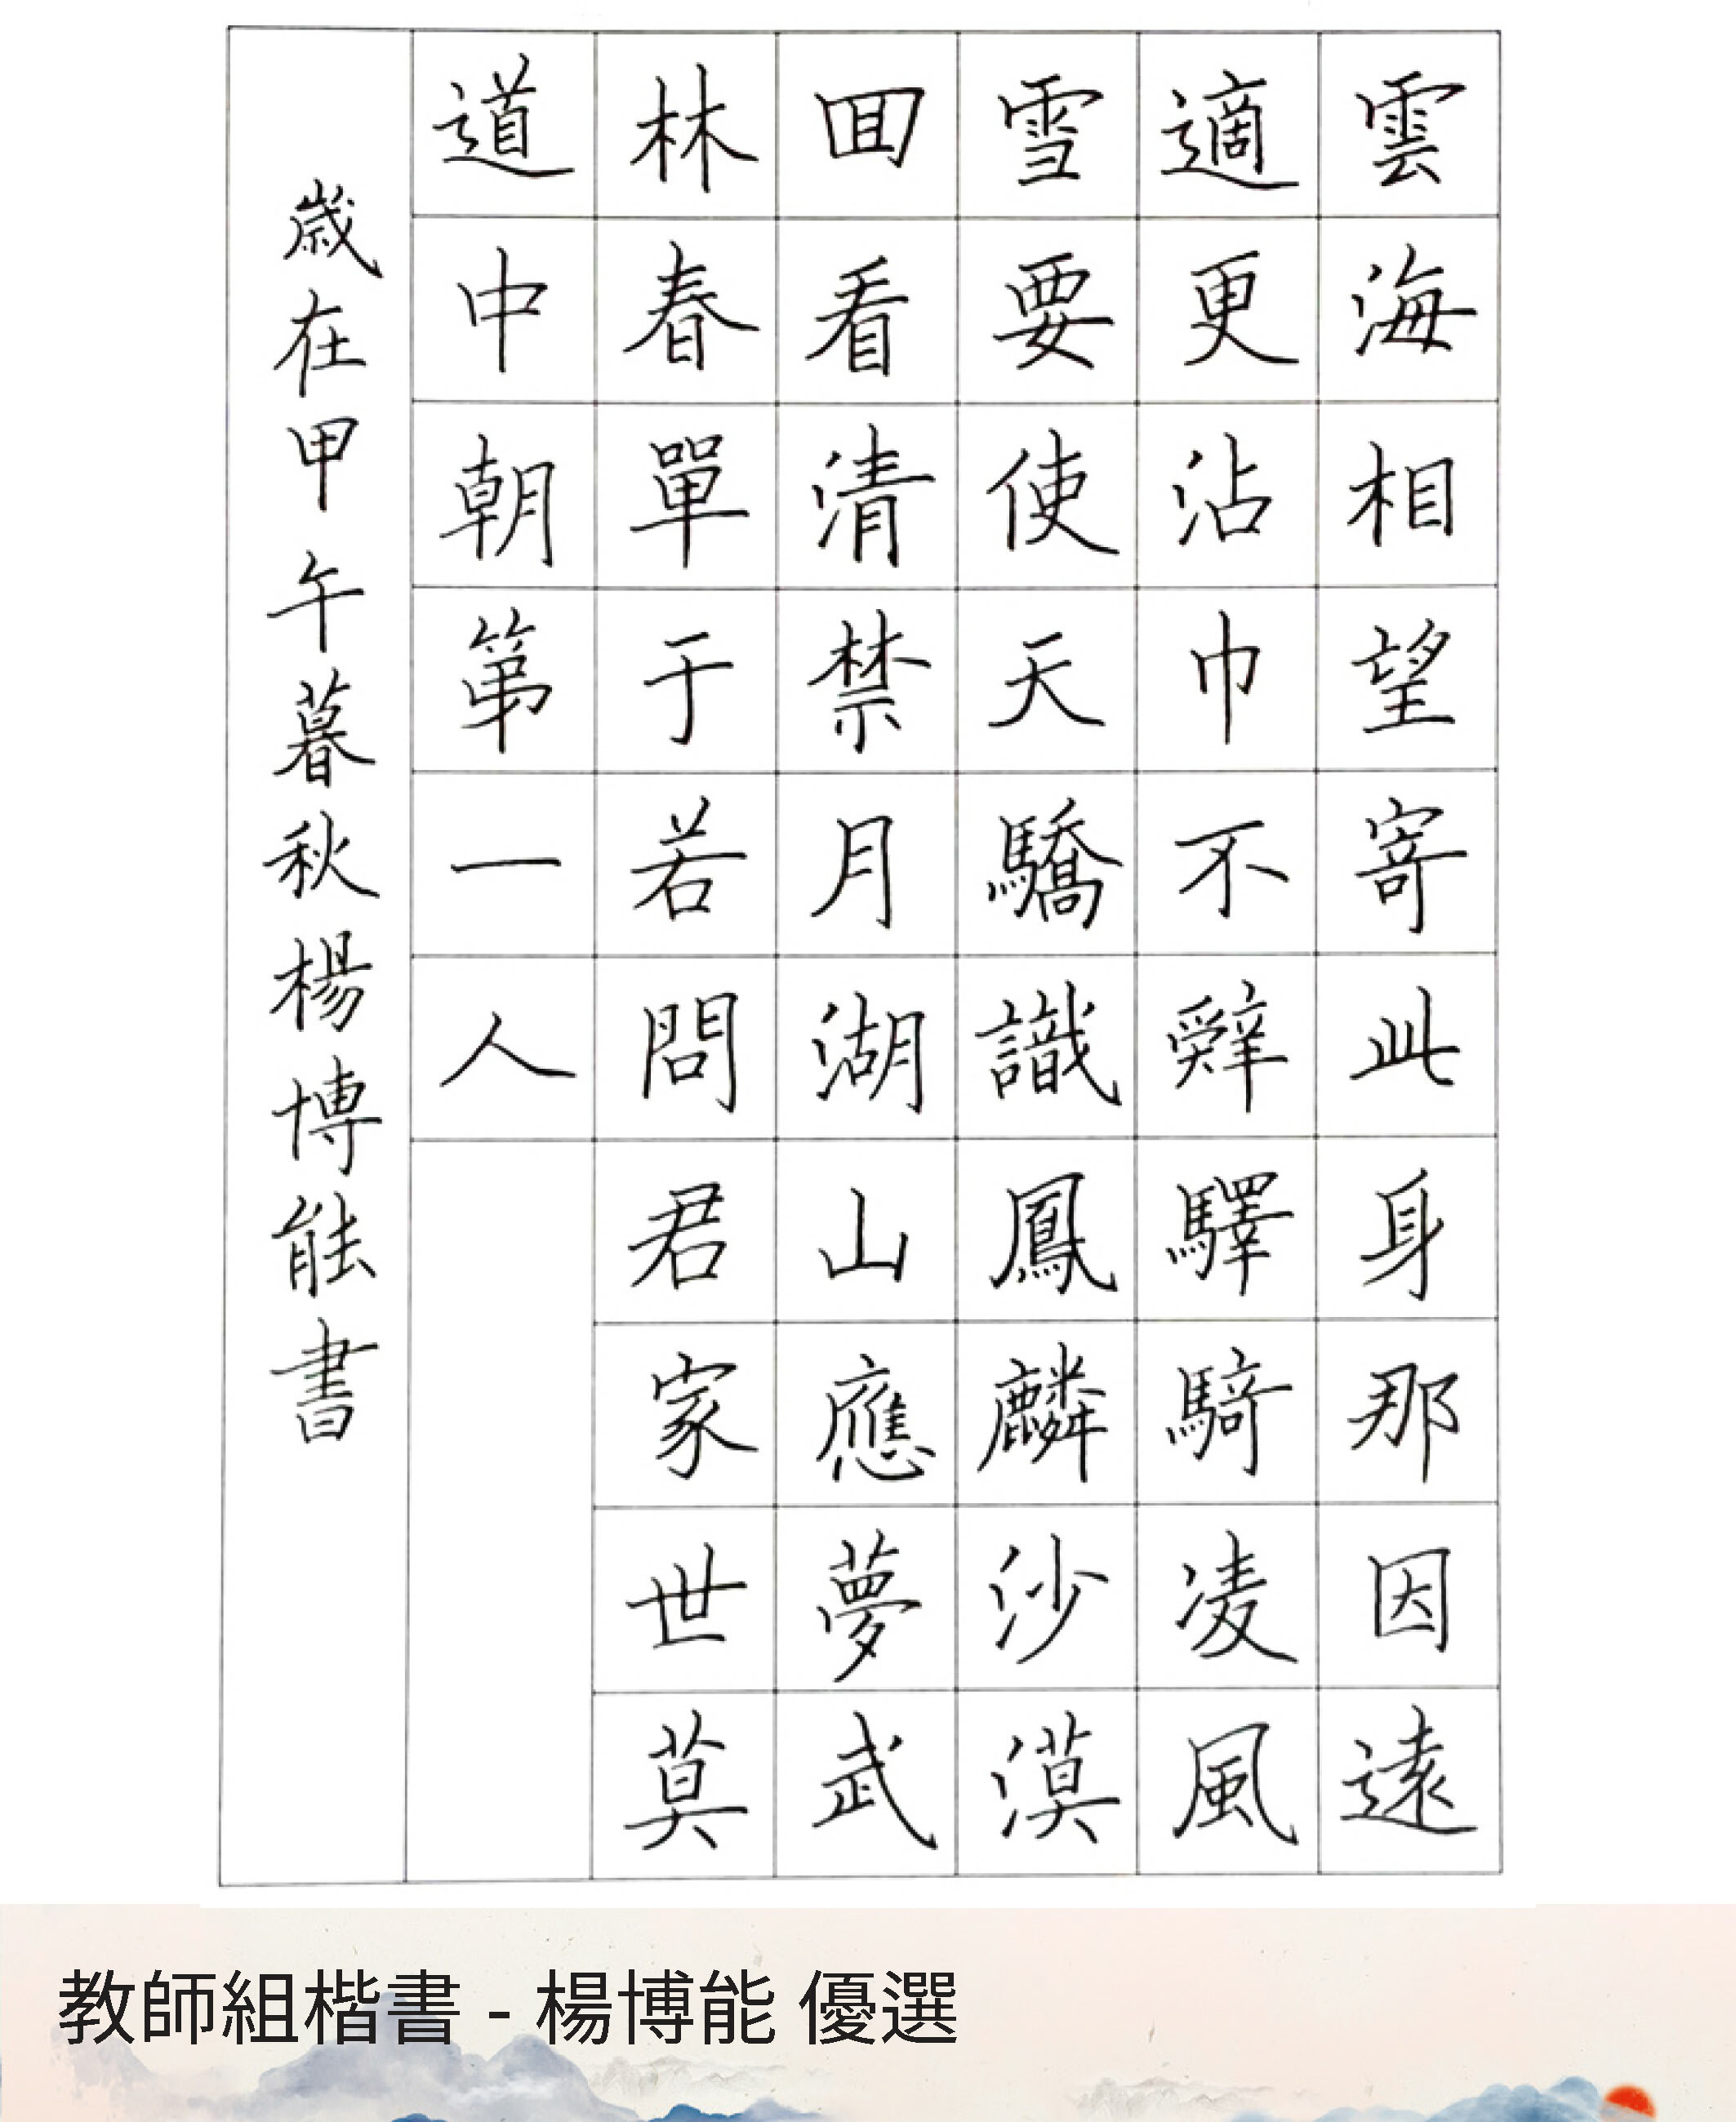 雲海相望寄此身那因遠
適更沾巾不辤驛騎凌風
雪要使天驕識鳳麟沙漠
囬看清禁月湖山應夢武
林春單于若問君家世莫
道中朝第一人
歲在甲午暮秋楊博能書
教師組楷書 - 楊博能 優選